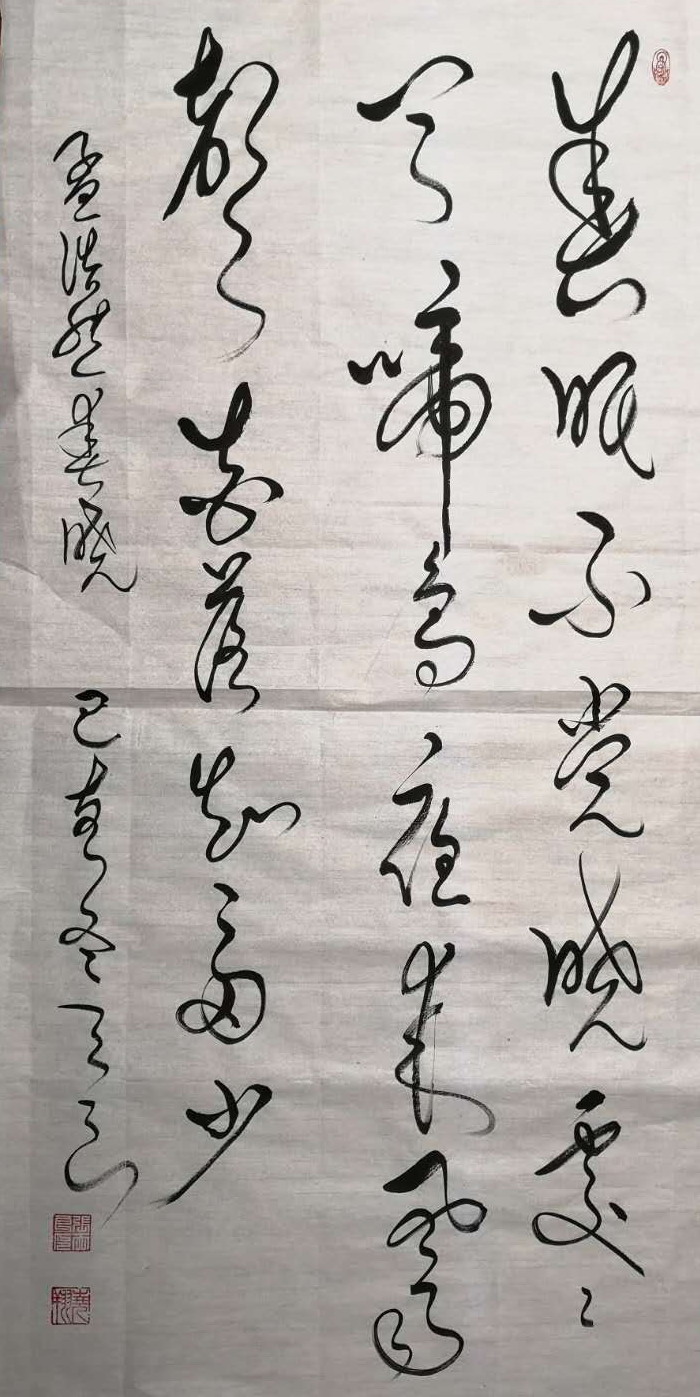 春眠不觉晓处々
闻啼鸟夜来风雨
声花落知多少
孟浩然春晓 己亥冬